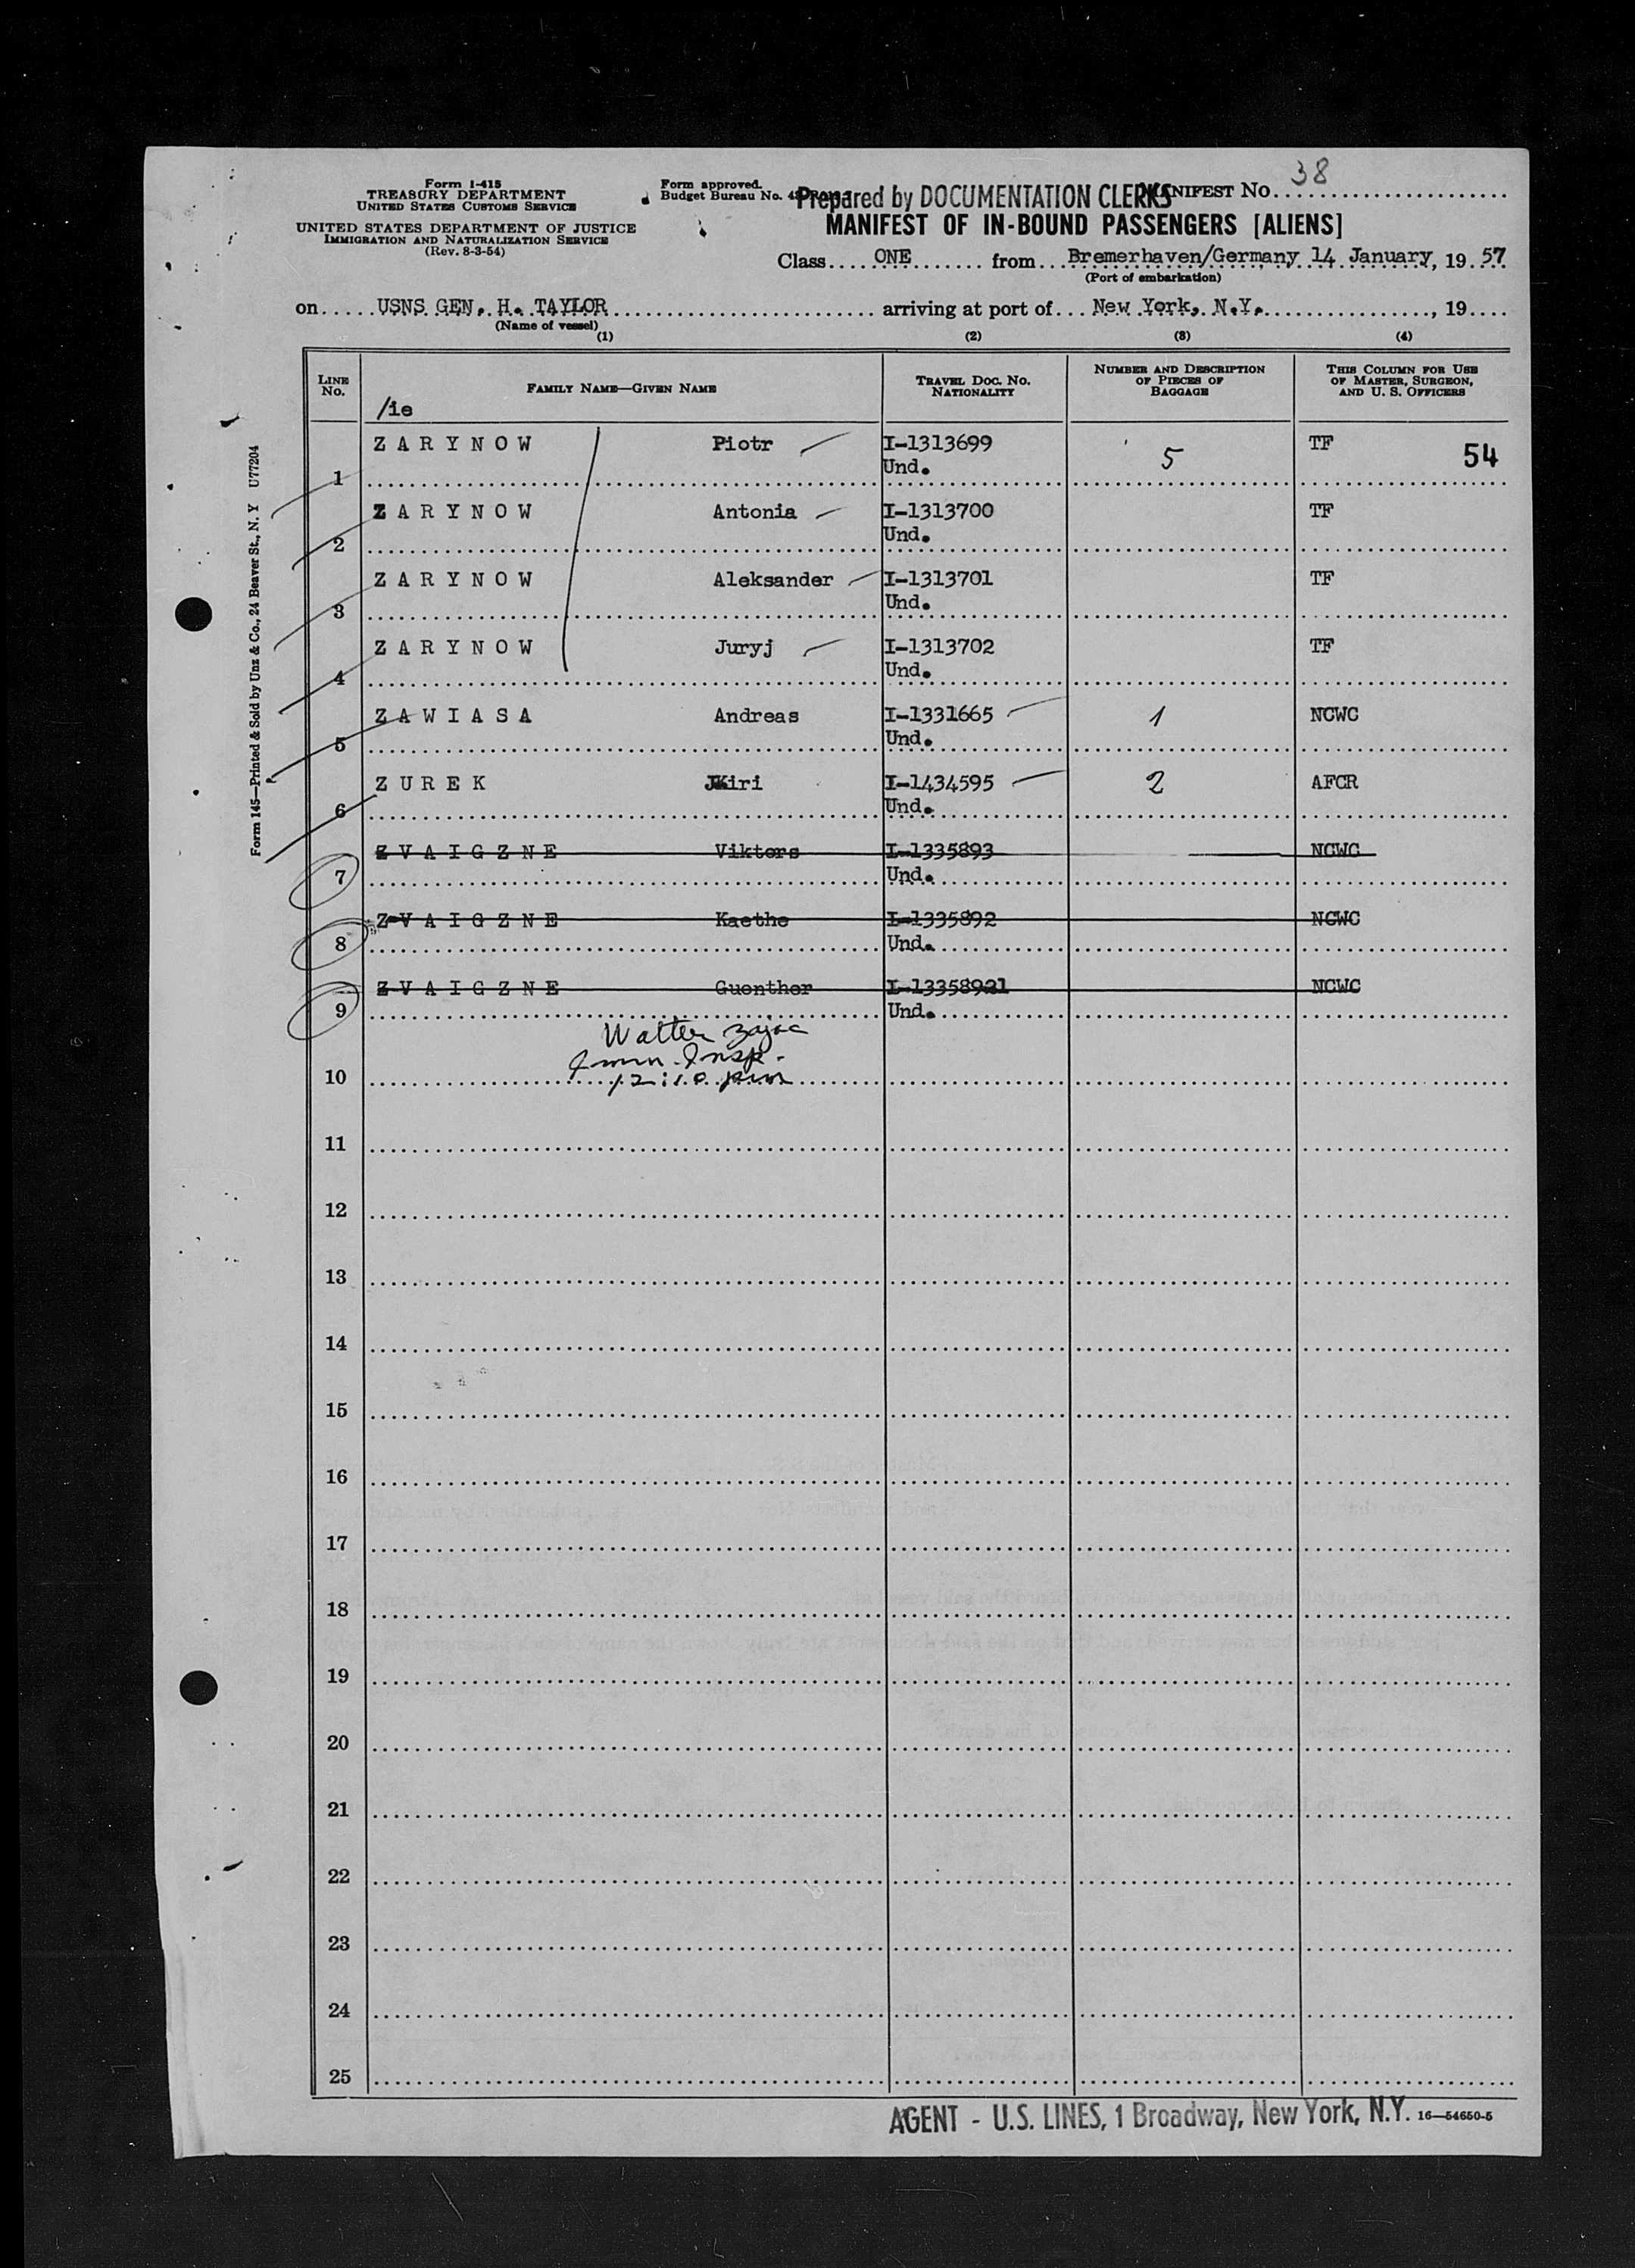 Form I-415
TREASURY DEPARTMENT
UNITED STATES CUSTOMS SERVICE
UNITED STATES DEPARTMENT OF JUSTICE
IMMIGRATION AND NATURALIZATION SERVICE
(Rev. 8-3-54)
Form approved.
Budget Bureau No.
Prepared by DOCUMENTATION CLERKS
MANIFEST No. 38
MANIFEST OF IN-BOUND PASSENGERS [ALIENS]
Class ONE from Bremerhaven/Germany 14 January, 19 57
(Port of embarkation)
on USNS GEN. H. TAYLOR arriving at port of New York, N.Y., 19
(Name of vessel)
(1) (2) (3) (4)
LINE No. FAMILY NAME—GIVEN NAME TRAVEL DOC. No. NATIONALITY NUMBER AND DESCRIPTION OF PIECES OF BAGGAGE THIS COLUMN FOR USE OF MASTER, SURGEON, AND U. S. OFFICERS
/ie
1 ZARYNOW Piotr I-1313699 Und. 5 TF 54
2 ZARYNOW Antonia I-1313700 Und. TF
3 ZARYNOW Aleksander I-1313701 Und. TF
4 ZARYNOW Juryj I-1313702 Und. TF
5 ZAWIASA Andreas I-1331665 Und. 1 NCWC
6 ZUREK Jiri I-1434595 Und. 2 AFCR
7 ZVAIGZNE Viktors I-1335893 Und. NCWC
8 ZVAIGZNE Kaethe I-1335892 Und. NCWC
9 ZVAIGZNE Guenther I-13358921 Und. NCWC
Walter Zajac
Imm. Insp.
12:10 pm
10
11
12
13
14
15
16
17
18
19
20
21
22
23
24
25
AGENT - U.S. LINES, 1 Broadway, New York, N.Y. 16—54650-5
Form 145—Printed & Sold by Unz & Co., 24 Beaver St., N. Y U77204